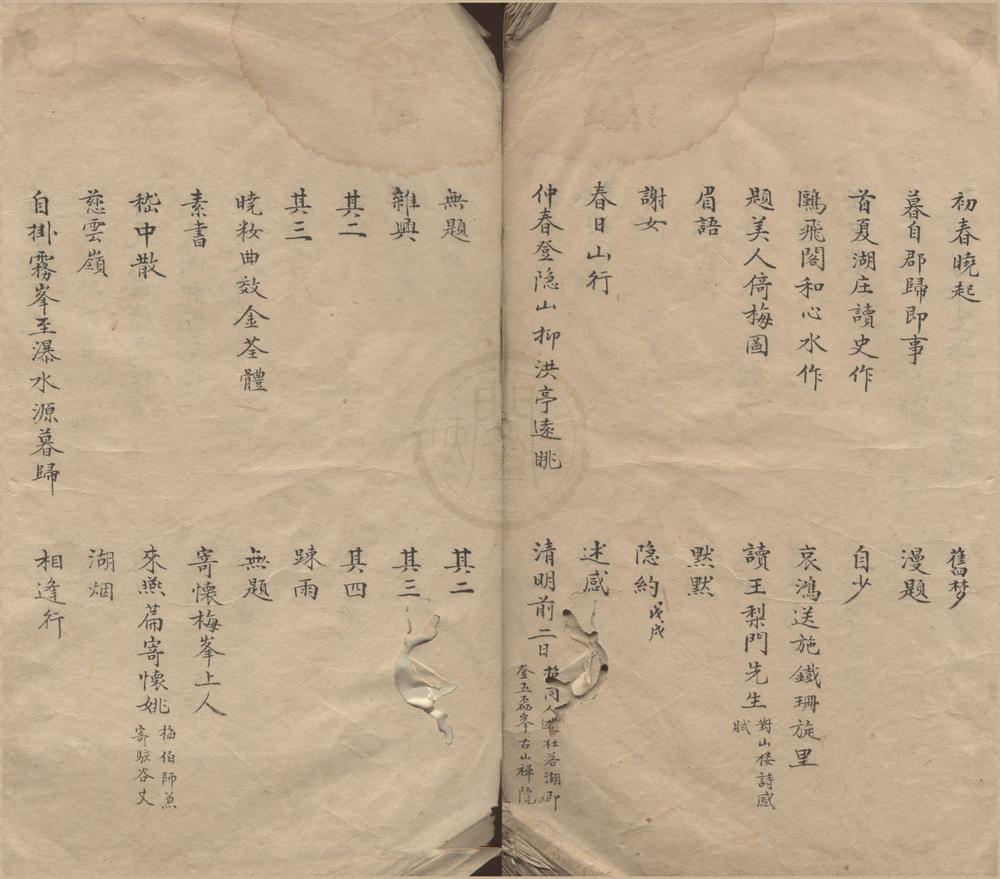 初春曉起
暮自郡歸即事
首夏湖庄讀史作
鷗飛閣和心水作
題美人倚梅圖
眉語
謝女
春日山行
仲春登隐山抑洪亭遠眺
無題
雜興
其二
其三
曉妝曲效金荃體
素書
嵇中散
慈雲嶺
自掛霧峯至瀑水源暮歸
舊梦
漫題
自少
哀鴻送施鐵珊旋里
讀王梨門先生對山楼詩感賦
默默
隐約戊戌
述感
清明前二日招同人杜若湖即登五磊峯古山禅院
其二
其三
其四
踈雨
無題
寄懷梅峯上人
來燕篇寄懷姚梅伯師兼寄駐谷丈
湖烟
相逢行